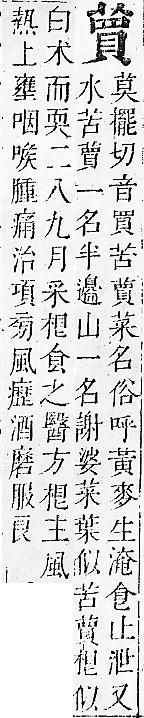 蕒
莫擺切音買苦蕒菜名俗呼黃麥生淹食止泄又
水苦蕒一名半邊山一名謝婆菜葉似苦蕒根似
白术而耎二八九月采根食之醫方根主風
熱上壅咽喉腫痛治項旁風癧酒磨服良